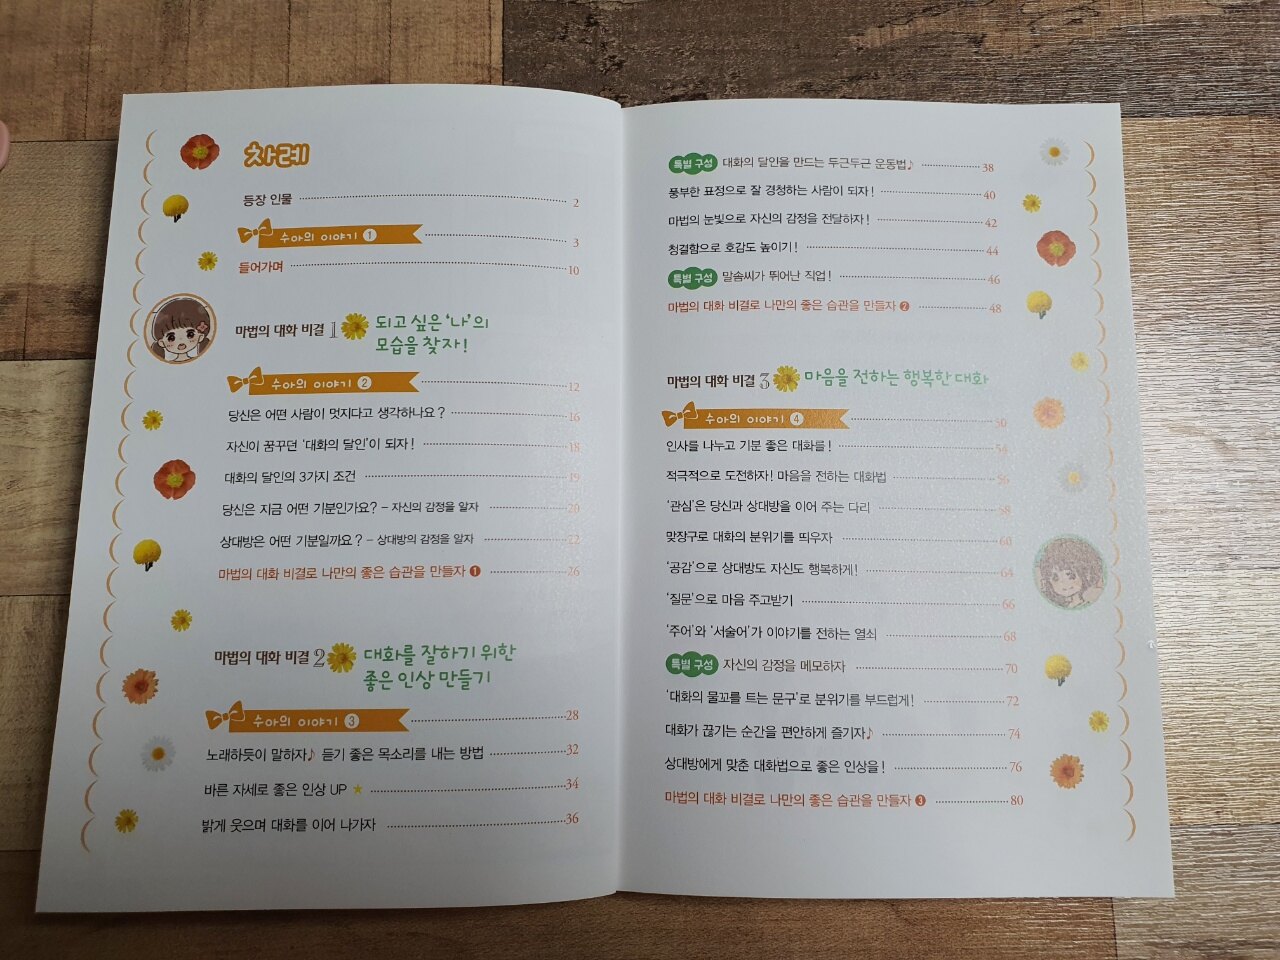 차례
등장 인물 2
수아의 이야기 1 3
들어가며 10
마법의 대화 비결 1 되고 싶은 '나'의
모습을 찾자!
수아의 이야기 2 12
당신은 어떤 사람이 멋지다고 생각하나요? 16
자신이 꿈꾸던 '대화의 달인'이 되자! 18
대화의 달인의 3가지 조건 19
당신은 지금 어떤 기분인가요? - 자신의 감정을 알자 20
상대방은 어떤 기분일까요? - 상대방의 감정을 알자 22
마법의 대화 비결로 나만의 좋은 습관을 만들자 1 26
마법의 대화 비결 2 대화를 잘하기 위한
좋은 인상 만들기
수아의 이야기 3 28
노래하듯이 말하자♪ 듣기 좋은 목소리를 내는 방법 32
바른 자세로 좋은 인상 UP ★ 34
밝게 웃으며 대화를 이어 나가자 36
특별 구성 대화의 달인을 만드는 두근두근 운동법♪ 38
풍부한 표정으로 잘 경청하는 사람이 되자! 40
마법의 눈빛으로 자신의 감정을 전달하자! 42
청결함으로 호감도 높이기! 44
특별 구성 말솜씨가 뛰어난 직업! 46
마법의 대화 비결로 나만의 좋은 습관을 만들자 2 48
마법의 대화 비결 3 마음을 전하는 행복한 대화
수아의 이야기 4 50
인사를 나누고 기분 좋은 대화를! 54
적극적으로 도전하자! 마음을 전하는 대화법 56
'관심'은 당신과 상대방을 이어 주는 다리 58
맞장구로 대화의 분위기를 띄우자 60
'공감'으로 상대방도 자신도 행복하게! 64
'질문'으로 마음 주고받기 66
'주어'와 '서술어'가 이야기를 전하는 열쇠 68
특별 구성 자신의 감정을 메모하자 70
'대화의 물꼬를 트는 문구'로 분위기를 부드럽게! 72
대화가 끊기는 순간을 편안하게 즐기자♪ 74
상대방에게 맞춘 대화법으로 좋은 인상을! 76
마법의 대화 비결로 나만의 좋은 습관을 만들자 3 80